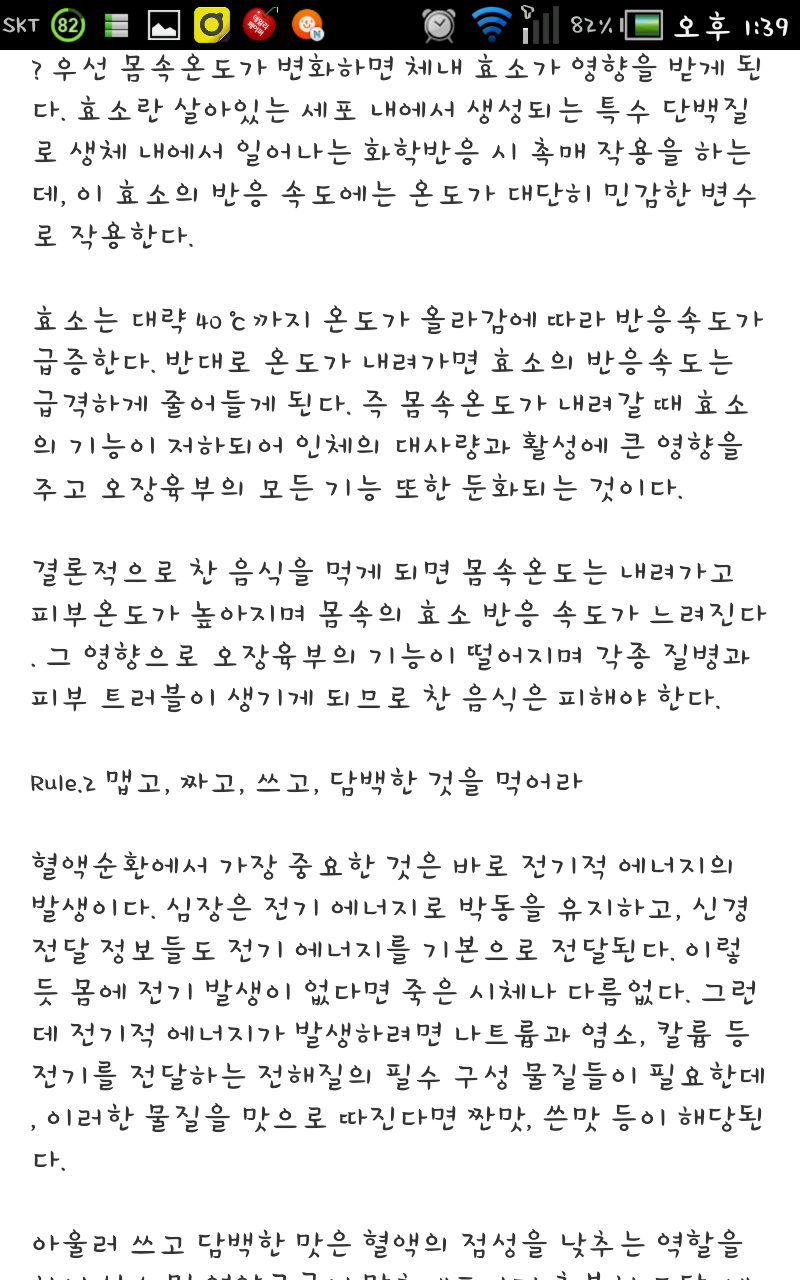 SKT 82 82% 오후 1:39
? 우선 몸속온도가 변화하면 체내 효소가 영향을 받게 된
다. 효소란 살아있는 세포 내에서 생성되는 특수 단백질
로 생체 내에서 일어나는 화학반응 시 촉매 작용을 하는
데, 이 효소의 반응 속도에는 온도가 대단히 민감한 변수
로 작용한다.
효소는 대략 40℃까지 온도가 올라감에 따라 반응속도가
급증한다. 반대로 온도가 내려가면 효소의 반응속도는
급격하게 줄어들게 된다. 즉 몸속온도가 내려갈 때 효소
의 기능이 저하되어 인체의 대사량과 활성에 큰 영향을
주고 오장육부의 모든 기능 또한 둔화되는 것이다.
결론적으로 찬 음식을 먹게 되면 몸속온도는 내려가고
피부온도가 높아지며 몸속의 효소 반응 속도가 느려진다
. 그 영향으로 오장육부의 기능이 떨어지며 각종 질병과
피부 트러블이 생기게 되므로 찬 음식은 피해야 한다.
Rule.2 맵고, 짜고, 쓰고, 담백한 것을 먹어라
혈액순환에서 가장 중요한 것은 바로 전기적 에너지의
발생이다. 심장은 전기 에너지로 박동을 유지하고, 신경
전달 정보들도 전기 에너지를 기본으로 전달된다. 이렇
듯 몸에 전기 발생이 없다면 죽은 시체나 다름없다. 그런
데 전기적 에너지가 발생하려면 나트륨과 염소, 칼륨 등
전기를 전달하는 전해질의 필수 구성 물질들이 필요한데
, 이러한 물질을 맛으로 따진다면 짠맛, 쓴맛 등이 해당된
다.
아울러 쓰고 담백한 맛은 혈액의 점성을 낮추는 역할을